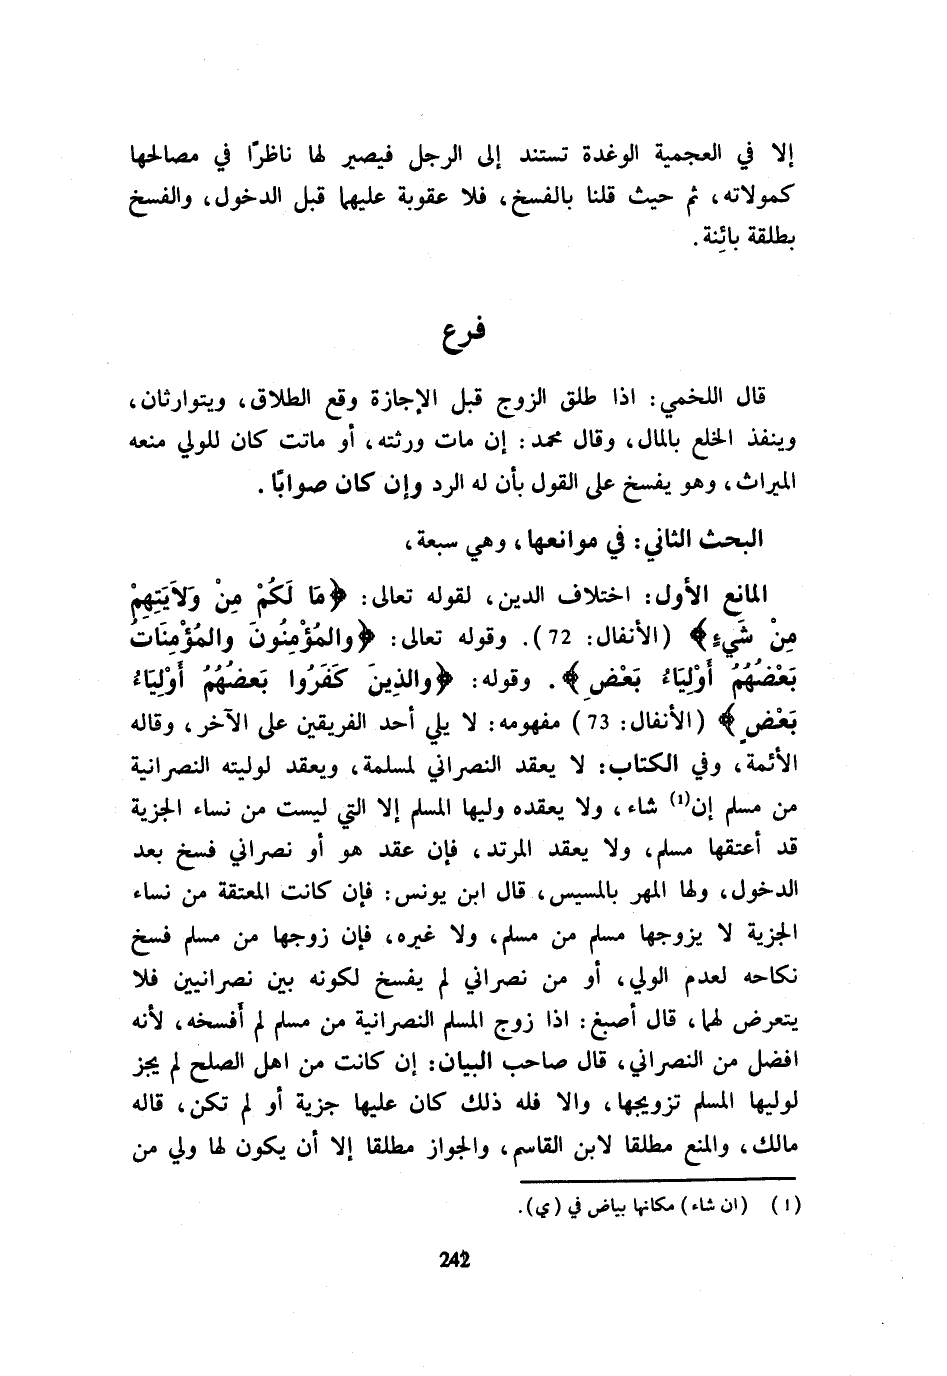 إلا في العجمية الوغدة تستند إلى الرجل فيصير لها ناظرًا في مصالحها
كمولاته، ثم حيث قلنا بالفسخ، فلا عقوبة عليهما قبل الدخول، والفسخ
بطلقة بائِنة.
فرع
قال اللخمي: اذا طلق الزوج قبل الإجازة وقع الطلاق، ويتوارثان،
وينفذ الخلع بالمال، وقال محمد: إن مات ورثته، أو ماتت كان للولي منعه
الميراث، وهو يفسخ على القول بأن له الرد وإن كان صوابًا.
البحث الثاني: في موانعها، وهي سبعة،
المانع الأول: اختلاف الدين، لقوله تعالى: ﴿مَا لَكُمْ مِنْ وَلاَيَتِهِمْ
مِنْ شَيءٍ﴾ (الأنفال: 72). وقوله تعالى: ﴿والمُؤْمِنُونَ والمُؤْمِنَاتُ
بَعْضُهُمُ أَوْلِيَاءُ بَعْضٍ﴾. وقوله: ﴿والذِينَ كَفَرُوا بَعضُهُم أَوْلِيَاءُ
بَعْضٍ﴾ (الأنفال: 73) مفهومه: لا يلي أحد الفريقين على الآخر، وقاله
الأئمة، وفي الكتاب: لا يعقد النصراني لمسلمة، ويعقد لوليته النصرانية
من مسلم إن(١) شاء، ولا يعقده وليها المسلم إلا التي ليست من نساء الجزية
قد أعتقها مسلم، ولا يعقد المرتد، فإن عقد هو أو نصراني فسخ بعد
الدخول، ولها المهر بالمسيس، قال ابن يونس: فإن كانت المعتقة من نساء
الجزية لا يزوجها مسلم من مسلم، ولا غيره، فإن زوجها من مسلم فسخ
نكاحه لعدم الولي، أو من نصراني لم يفسخ لكونه بين نصرانيين فلا
يتعرض لهما، قال أصبغ: اذا زوج المسلم النصرانية من مسلم لم أفسخه، لأنه
افضل من النصراني، قال صاحب البيان: إن كانت من اهل الصلح لم يجز
لوليها المسلم تزويجها، والا فله ذلك كان عليها جزية أو لم تكن، قاله
مالك، والمنع مطلقا لابن القاسم، والجواز مطلقا إلا أن يكون لها ولي من
(١) (ان شاء) مكانها بياض في (ي).
242